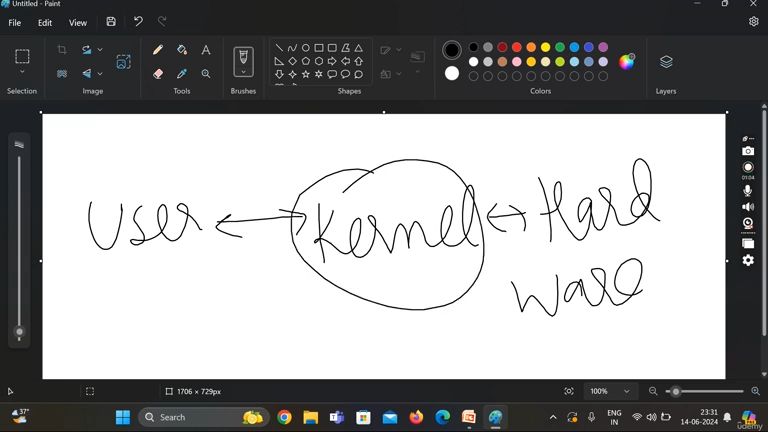 Untitled - Paint
File Edit View
Selection Image Tools Brushes Shapes Colors Layers
01:04
User Kernel Hard
ware
1706 × 729px 100%
37°
Search
ENG
IN
23:31
14-06-2024
ûdemy